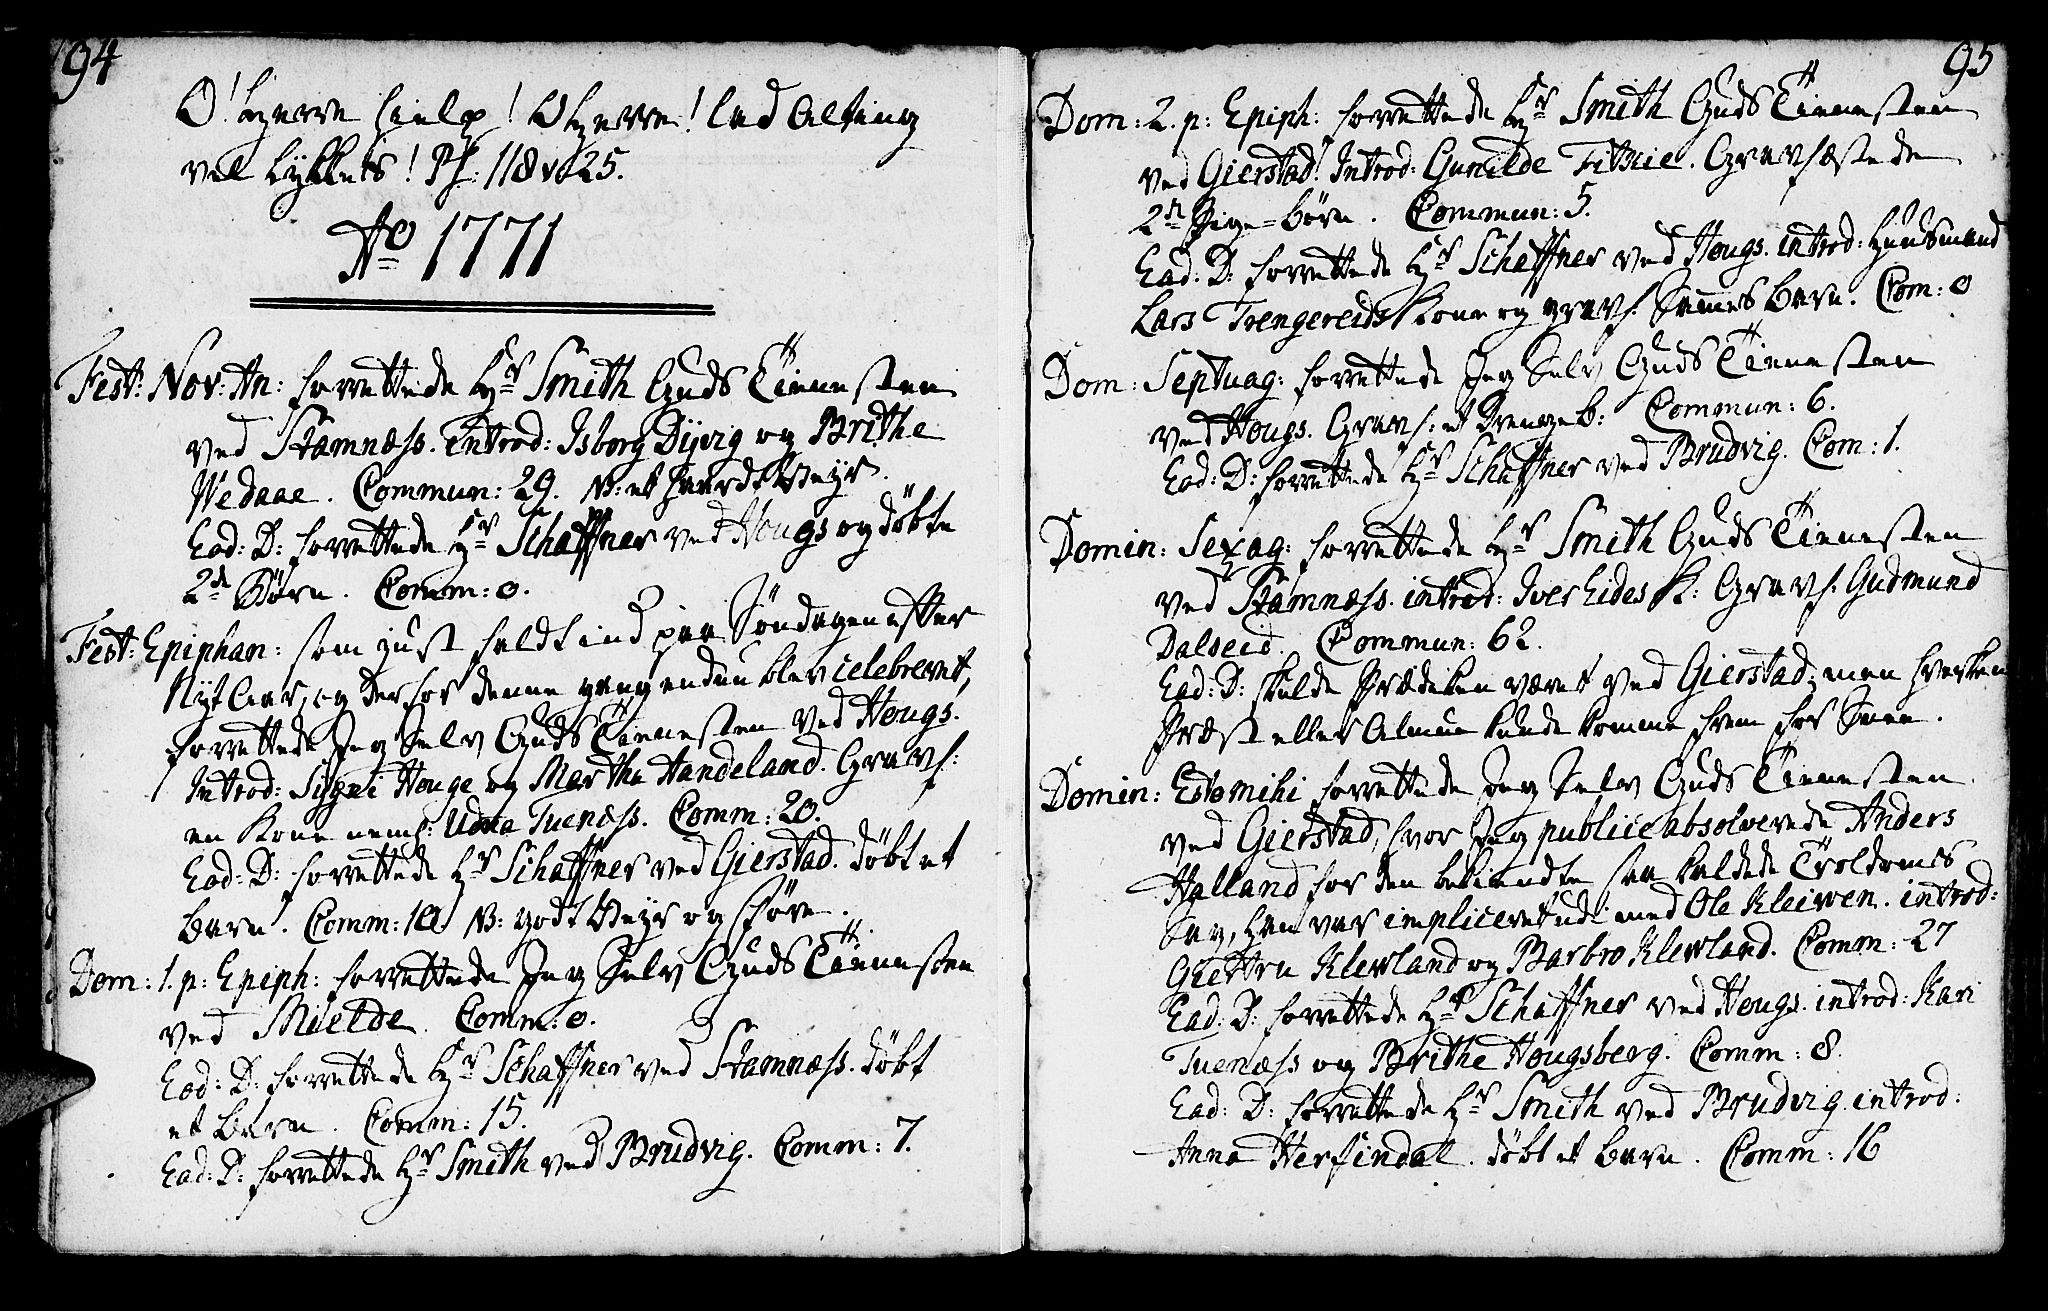 94
O! Herre hielp! O Herre! lad Alting
vel lykkes! Ps: 118 v 25.
Ao 1771
Fest: Nov: An: forrettede Hr Smith Guds Tienesten
ved Stamnæss. Introd: Isborg Dyvig og Brithe
Wedaae. Commun: 29. NB: et haardt Veyr.
Ead: D: forrettede Hr Schaffner ved Hougs og døbte
2de Børn. Comm: 0.
Fest: Epiphan: som just faldt ind paa Søndagen effter
Nyt Aar, og derfor denne gang endnu blev celebreret,
forrettede Jeg Selv Guds Tienesten ved Hougs.
Introd: Signi Houge og Martha Handeland. Gravf:
en Kone neml: Udna Tuenæss. Comm: 20.
Ead: D: forrettede Hr Schaffner ved Gierstad. døbt et
barn. Comm: 10. NB: godt Veyr og Føre.
Dom: 1. p: Epiph: forrettede Jeg Selv Guds Tienesten
ved Mielde. Comm: 0.
Ead: D: forrettede Hr Schaffner ved Stamnæss. døbt
et Barn. Comm: 15.
Ead: D: forrettede Hr Smith ved Brudvig. Comm: 7.
95
Dom: 2. p: Epiph: forrettede Hr Smith Guds Tienesten
ved Gierstad. Introd: Gunilde Fitkie. Gravfæstede
2de Pige=børn. Commun: 5.
Ead: D: forrettede Hr Schaffner ved Hougs. introd: Huusmand
Lars Trengereids Kone og gravf. Sammes barn. Com: 0
Dom: Septuag: forrettede Jeg Selv Guds Tienesten
ved Hougs. Gravf: et Drengeb: Commun: 6.
Ead: D: forrettede Hr Schaffner ved Brudvig. Com: 1.
Domin: Sexag: forrettede Hr Smith Guds Tienesten
ved Stamnæss. introd: Iver Eides K: Gravf. Gudmund
Dalseid. Commun: 62.
Ead: D: skulde Prædiken været ved Gierstad; men hverken
Præst eller Almue kunde komme frem for Snee.
Domin: Estomihi forrettede Jeg Selv Guds Tienesten
ved Gierstad, hvor Jeg publice absolverede Anders
Halland for den bekiendte saa kaldede Troldoms
Sag, han var impliceret udi med Ole Kleiven. introd:
Giettru Klevland og Barbro Klevland. Comm: 27
Ead: D: forrettede Hr Schaffner ved Hougs. introd: Kari
Tuenæss og Brithe Hougsberg. Comm: 8.
Ead: D: forrettede Hr Smith ved Brudvig. introd:
Anna Herfindal. døbt et barn. Comm: 16